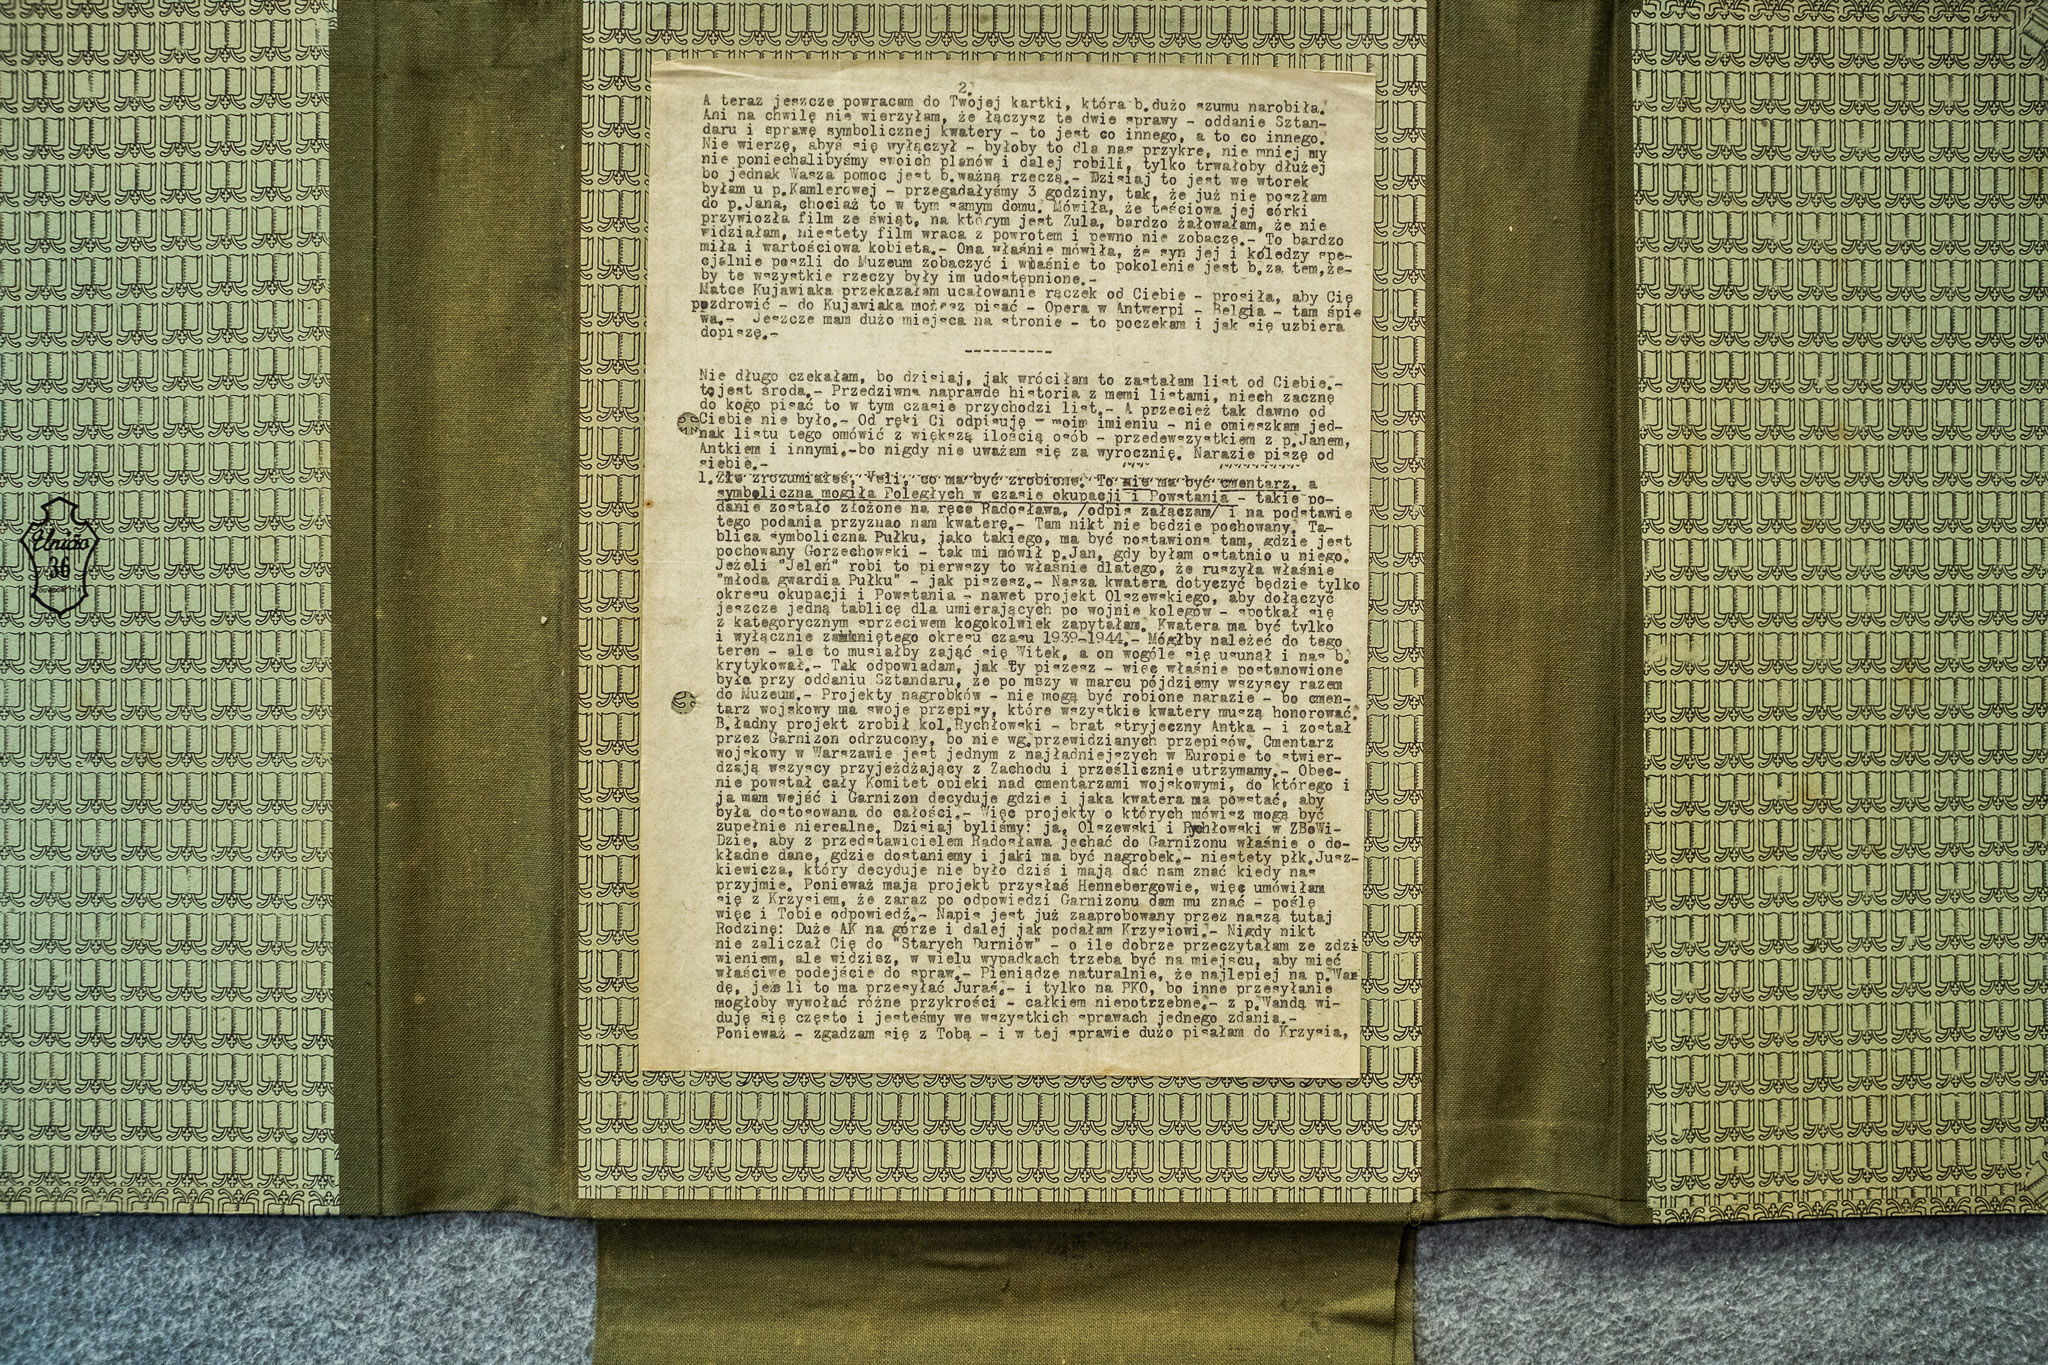 União
36
2.
A teraz jeszcze powracam do Twojej kartki, która b.dużo szumu narobiła.
Ani na chwilę nie wierzyłam, że łączysz te dwie sprawy - oddanie Sztan-
daru i sprawę symbolicznej kwatery - to jest co innego, a to co innego.
Nie wierzę, abyś się wyłączył - byłoby to dla nas przykre, nie mniej my
nie poniechalibyśmy swoich planów i dalej robili, tylko trwałoby dłużej
bo jednak Wasza pomoc jest b.ważną rzeczą.- Dzisiaj to jest we wtorek
byłam u p.Kamlerowej - przegadałyśmy 3 godziny, tak, że już nie poszłam
do p.Jana, chociaż to w tym samym domu. Mówiła, że teściowa jej córki
przywiozła film ze świąt, na którym jest Zula, bardzo żałowałam, że nie
widziałam, niestety film wraca z powrotem i pewno nie zobaczę.- To bardzo
miła i wartościowa kobieta.- Ona właśnie mówiła, że syn jej i koledzy spe-
cjalnie poszli do Muzeum zobaczyć i właśnie to pokolenie jest b.za tem,że-
by te wszystkie rzeczy były im udostępnione.-
Matce Kujawiaka przekazałam ucałowanie rączek od Ciebie - prosiła, aby Cię
pozdrowić - do Kujawiaka możesz pisać - Opera w Antwerpi - Belgia - tam śpie
wa.-  Jeszcze mam dużo miejsca na stronie - to poczekam i jak się uzbiera
dopiszę.-
----------
Nie długo czekałam, bo dzisiaj, jak wróciłam to zastałam list od Ciebie.-
to jest środa.- Przedziwna naprawdę historia z memi listami, niech zacznę
do kogo pisać to w tym czasie przychodzi list.- A przecież tak dawno od
Ciebie nie było.- Od ręki Ci odpisuję - moim imieniu - nie omieszkam jed-
nak listu tego omówić z większą ilością osób - przedewszystkiem z p.Janem,
Antkiem i innymi.-bo nigdy nie uważam się za wyrocznię. Narazie piszę od
siebie.-
1. Źle zrozumiałeś, Vsli, co ma być zrobione. To nie ma być cmentarz, a
symboliczna mogiła Poległych w czasie okupacji i Powstania - takie po-
danie zostało złożone na ręce Radosława, /odpis załączam/ i na podstawie
tego podania przyznao nam kwaterę.- Tam nikt nie będzie pochowany. Ta-
blica symboliczna Pułku, jako takiego, ma być postawiona tam, gdzie jest
pochowany Gorzechowski - tak mi mówił p.Jan, gdy byłam ostatnio u niego.
Jeżeli "Jeleń" robi to pierwszy to właśnie dlatego, że ruszyła właśnie
"młoda gwardia Pułku" - jak piszesz.- Nasza kwatera dotyczyć będzie tylko
okresu okupacji i Powstania - nawet projekt Olszewskiego, aby dołączyć
jeszcze jedną tablicę dla umierających po wojnie kolegów - spotkał się
z kategorycznym sprzeciwem kogokolwiek zapytałam. Kwatera ma być tylko
i wyłącznie zamkniętego okresu czasu 1939-1944.- Mógłby należeć do tego
teren - ale to musiałby zająć się Witek, a on wogóle się usunął i nas b.
krytykował.- Tak odpowiadam, jak Ty piszesz - więc właśnie postanowione
była przy oddaniu Sztandaru, że po mszy w marcu pójdziemy wszyscy razem
do Muzeum.- Projekty nagrobków - nie mogą być robione narazie - bo cmen-
tarz wojskowy ma swoje przepisy, które wszystkie kwatery muszą honorować.
B.ładny projekt zrobił kol.Rychłowski - brat stryjeczny Antka - i został
przez Garnizon odrzucony, bo nie wg.przewidzianych przepisów. Cmentarz
wojskowy w Warszawie jest jednym z najładniejszych w Europie to stwier-
dzają wszyscy przyjeżdżający z Zachodu i prześlicznie utrzymamy.- Obec-
nie powstał cały Komitet opieki nad cmentarzami wojskowymi, do którego i
ja mam wejść i Garnizon decyduje gdzie i jaka kwatera ma powstać, aby
była dostosowana do całości.- Więc projekty o których mówisz mogą być
zupełnie nierealne. Dzisiaj byliśmy: ja, Olszewski i Rychłowski w ZBoWi-
Dzie, aby z przedstawicielem Radosława jechać do Garnizonu właśnie o do-
kładne dane, gdzie dostaniemy i jaki ma być nagrobek.- niestety płk.Jusz-
kiewicza, który decyduje nie było dziś i mają dać nam znać kiedy nas
przyjmie. Ponieważ maja projekt przysłaś Hennebergowie, więc umówiłam
się z Krzysiem, że zaraz po odpowiedzi Garnizonu dam mu znać - poślę
więc i Tobie odpowiedź.- Napis jest już zaaprobowany przez naszą tutaj
Rodzinę: Duże AK na górze i dalej jak podałam Krzysiowi.- Nigdy nikt
nie zaliczał Cię do "Starych Durniów" - o ile dobrze przeczytałam ze zdzi
wieniem, ale widzisz, w wielu wypadkach trzeba być na miejscu, aby mieć
właściwe podejście do spraw.- Pieniądze naturalnie, że najlepiej na p.Wan
dę, jeże li to ma przesyłać Juraś.- i tylko na PKO, bo inne przesyłanie
mogłoby wywołać różne przykrości - całkiem niepotrzebne.- z p.Wandą wi-
duję się często i jesteśmy we wszystkich sprawach jednego zdania.-
Ponieważ - zgadzam się z Tobą - i w tej sprawie dużo pisałam do Krzysia,